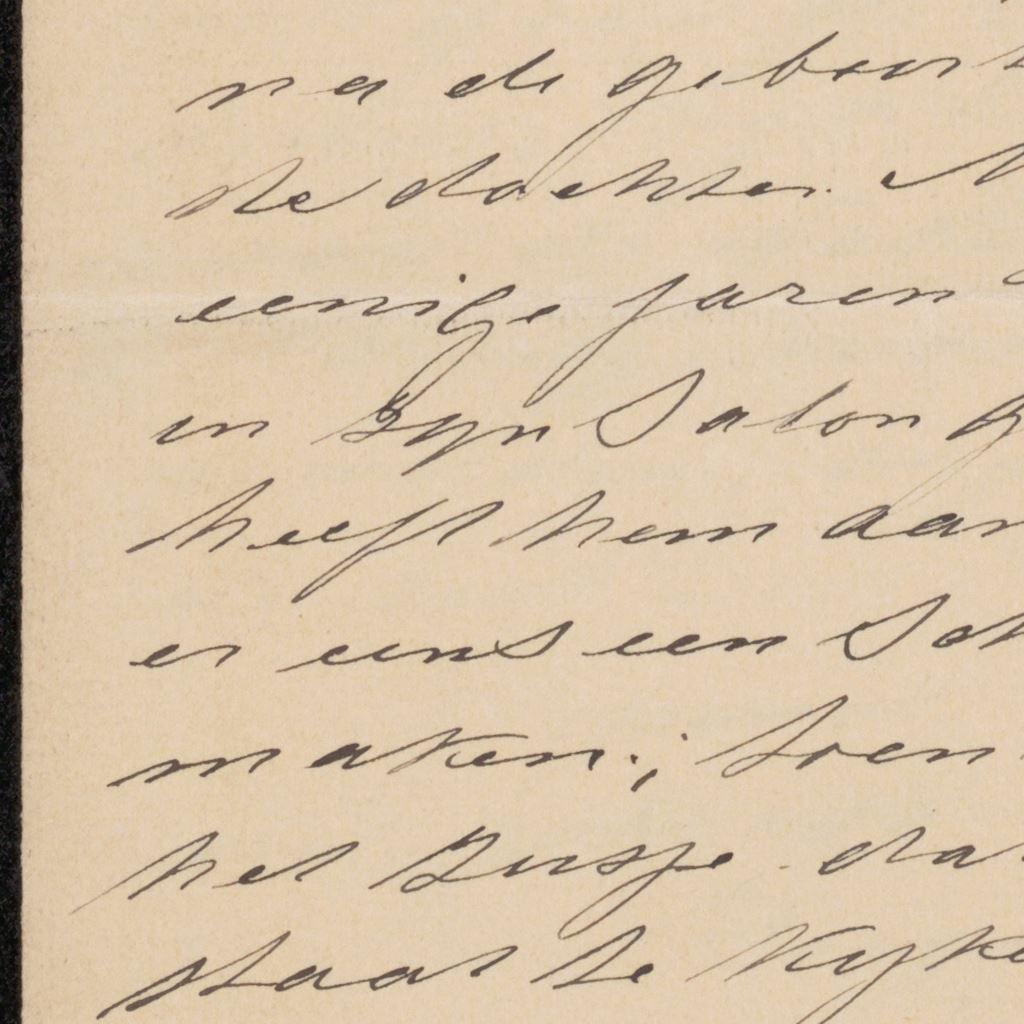 na de geboort
ste dochter. M
eenige jaren
in zyn Salon g
heeft hem aan
er eens een Sch
maken; toen
het Zusje dat
staat te kyke